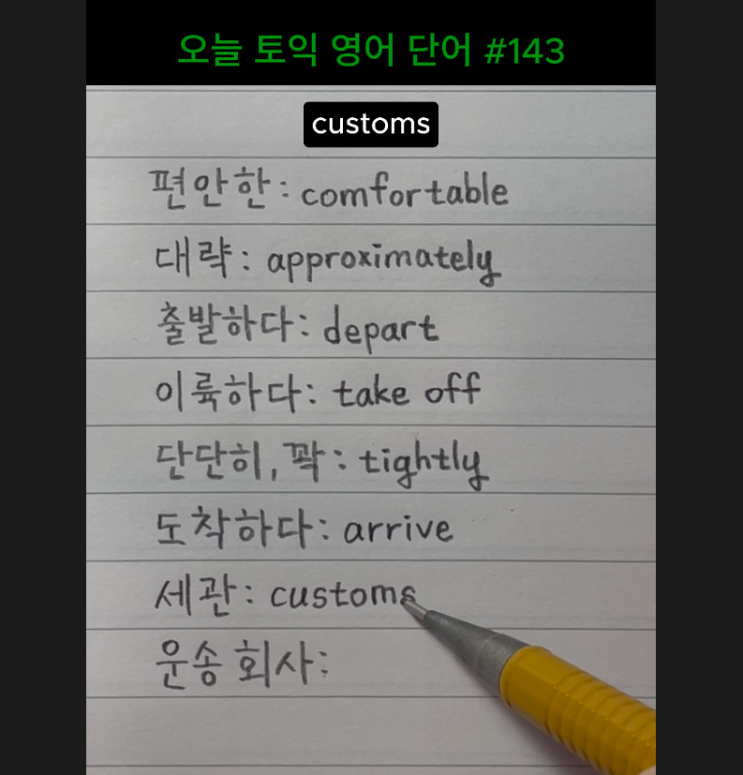 오늘 토익 영어 단어 #143
customs
편안한: comfortable
대략: approximately
출발하다: depart
이륙하다: take off
단단히, 꽉: tightly
도착하다: arrive
세관: customs
운송 회사: